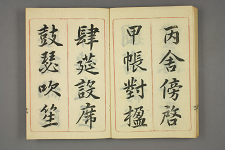 丙舍傍啓
甲帳對楹
肆筵設席
鼓瑟吹笙